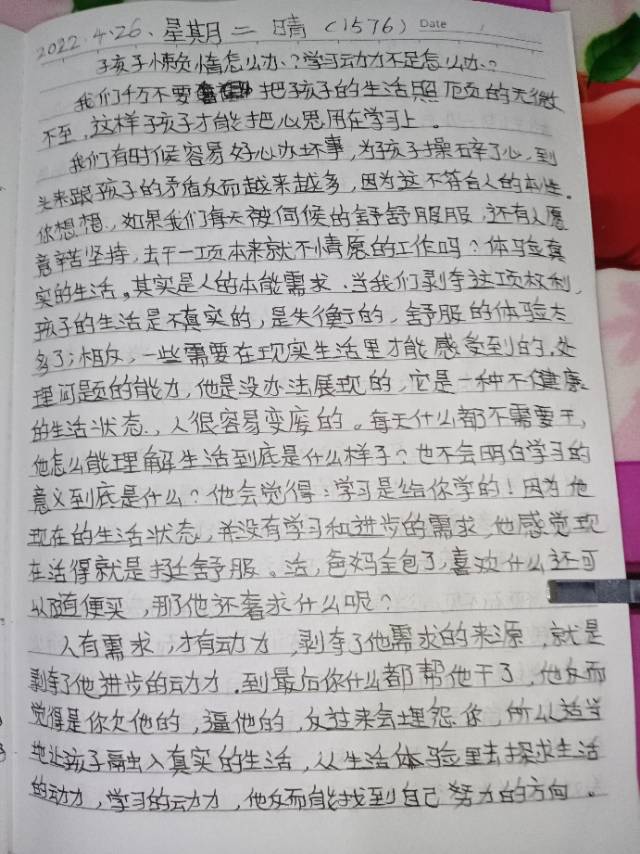 2022.4.26.星期二 晴(1576) Date
孩子懒惰怎么办?学习动力不足怎么办?
我们千万不要把孩子的生活照顾的无微
不至,这样孩子才能把心思用在学习上。
我们有时候容易好心办坏事,为孩子操碎了心,到
头来跟孩子的矛盾反而越来越多,因为这不符合人的本性。
你想想,如果我们每天被伺候的舒舒服服,还有人愿
意辛苦坚持,去干一项本来就不情愿的工作吗?体验真
实的生活。其实是人的本能需求.当我们剥夺这项权利,
孩子的生活是不真实的,是失衡的,舒服的体验太
多了;相反,一些需要在现实生活里才能感受到的,处
理问题的能力,他是没办法展现的,它是一种不健康
的生活状态.,人很容易变废的。每天什么都不需要干,
他怎么能理解生活到底是什么样子?也不会明白学习的
意义到底是什么?他会觉得:学习是给你学的!因为他
现在的生活状态,并没有学习和进步的需求,他感觉现
在活得就是挺舒服。活,爸妈全包了,喜欢什么还可
以随便买,那他还奢求什么呢?
人有需求,才有动力,剥夺了他需求的来源,就是
剥夺了他进步的动力.到最后你什么都帮他干了,他反而
觉得是你欠他的,逼他的,反过来会埋怨你,所以适当
地让孩子融入真实的生活,从生活体验里去探求生活
的动力,学习的动力,他反而能找到自己努力的方向。